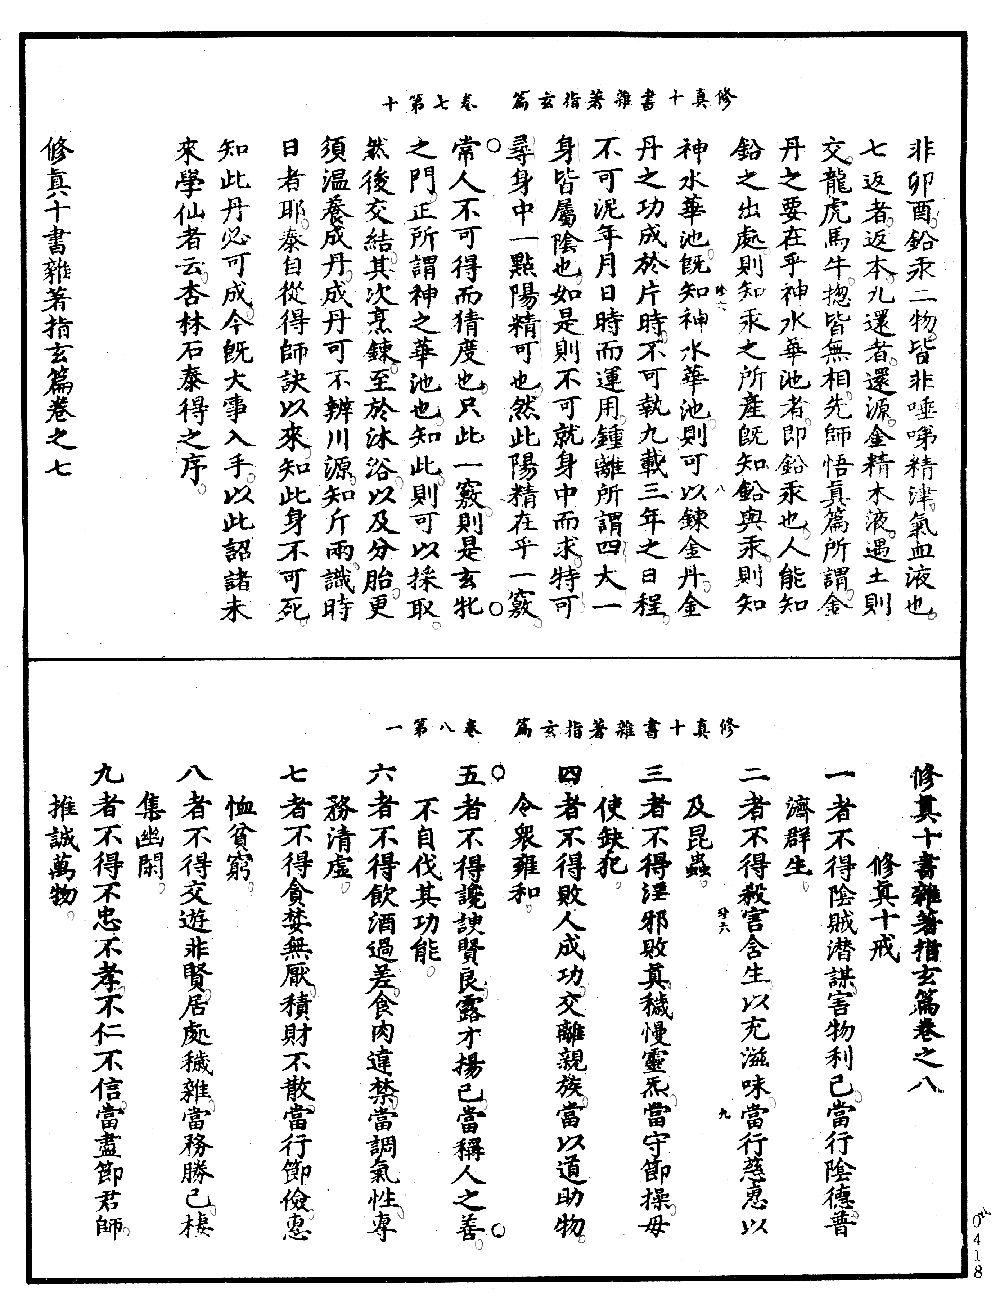 修真十書雜著指玄篇　卷七第十
非卯酉鉛汞二物皆非唾涕精津氣血液也
七返者返本九還者還源金精木液遇土則
交龍虎馬牛揔皆無相先師悟真篇所謂金
丹之要在乎神水華池者即鉛汞也人能知
鉛之出處則知汞之所產既知鉛與汞則知
神水華池既知神水華池則可以鍊金丹金
丹之功成於片時不可執九載三年之日程
不可泥年月日時而運用鍾離所謂四大一
身皆屬陰也如是則不可就身中而求特可
尋身中一點陽精可也然此陽精在乎一竅
常人不可得而猜度也只此一竅則是玄牝
之門正所謂神之華池也知此則可以採取
然後交結其次烹鍊至於沐浴以及分胎更
須温養成丹成丹可不辨川源知斤兩識時
日者耶泰自從得師訣以來知此身不可死
知此丹必可成今既大事入手以此詔諸未
來學仙者云杏林石泰得之序
修真十書雜著指玄篇卷之七
修真十書雜著指玄篇　卷八第一
修真十書雜著指玄篇卷之八
修真十戒
一者不得陰賊潛謀害物利己當行陰德普
濟群生
二者不得殺害含生以充滋味當行慈惠以
及昆蟲
三者不得淫邪敗真穢慢靈炁當守節操毋
使缺犯
四者不得敗人成功交離親族當以道助物
令衆雍和
五者不得讒諛賢良露才揚己當稱人之善
不自伐其功能
六者不得飲酒過差食肉違禁當調氣性專
務清虛
七者不得貪婪無厭積財不散當行節儉惠
恤貧窮
八者不得交遊非賢居處穢雜當務勝己棲
集幽閑
九者不得不忠不孝不仁不信當盡節君師
推誠萬物
0418